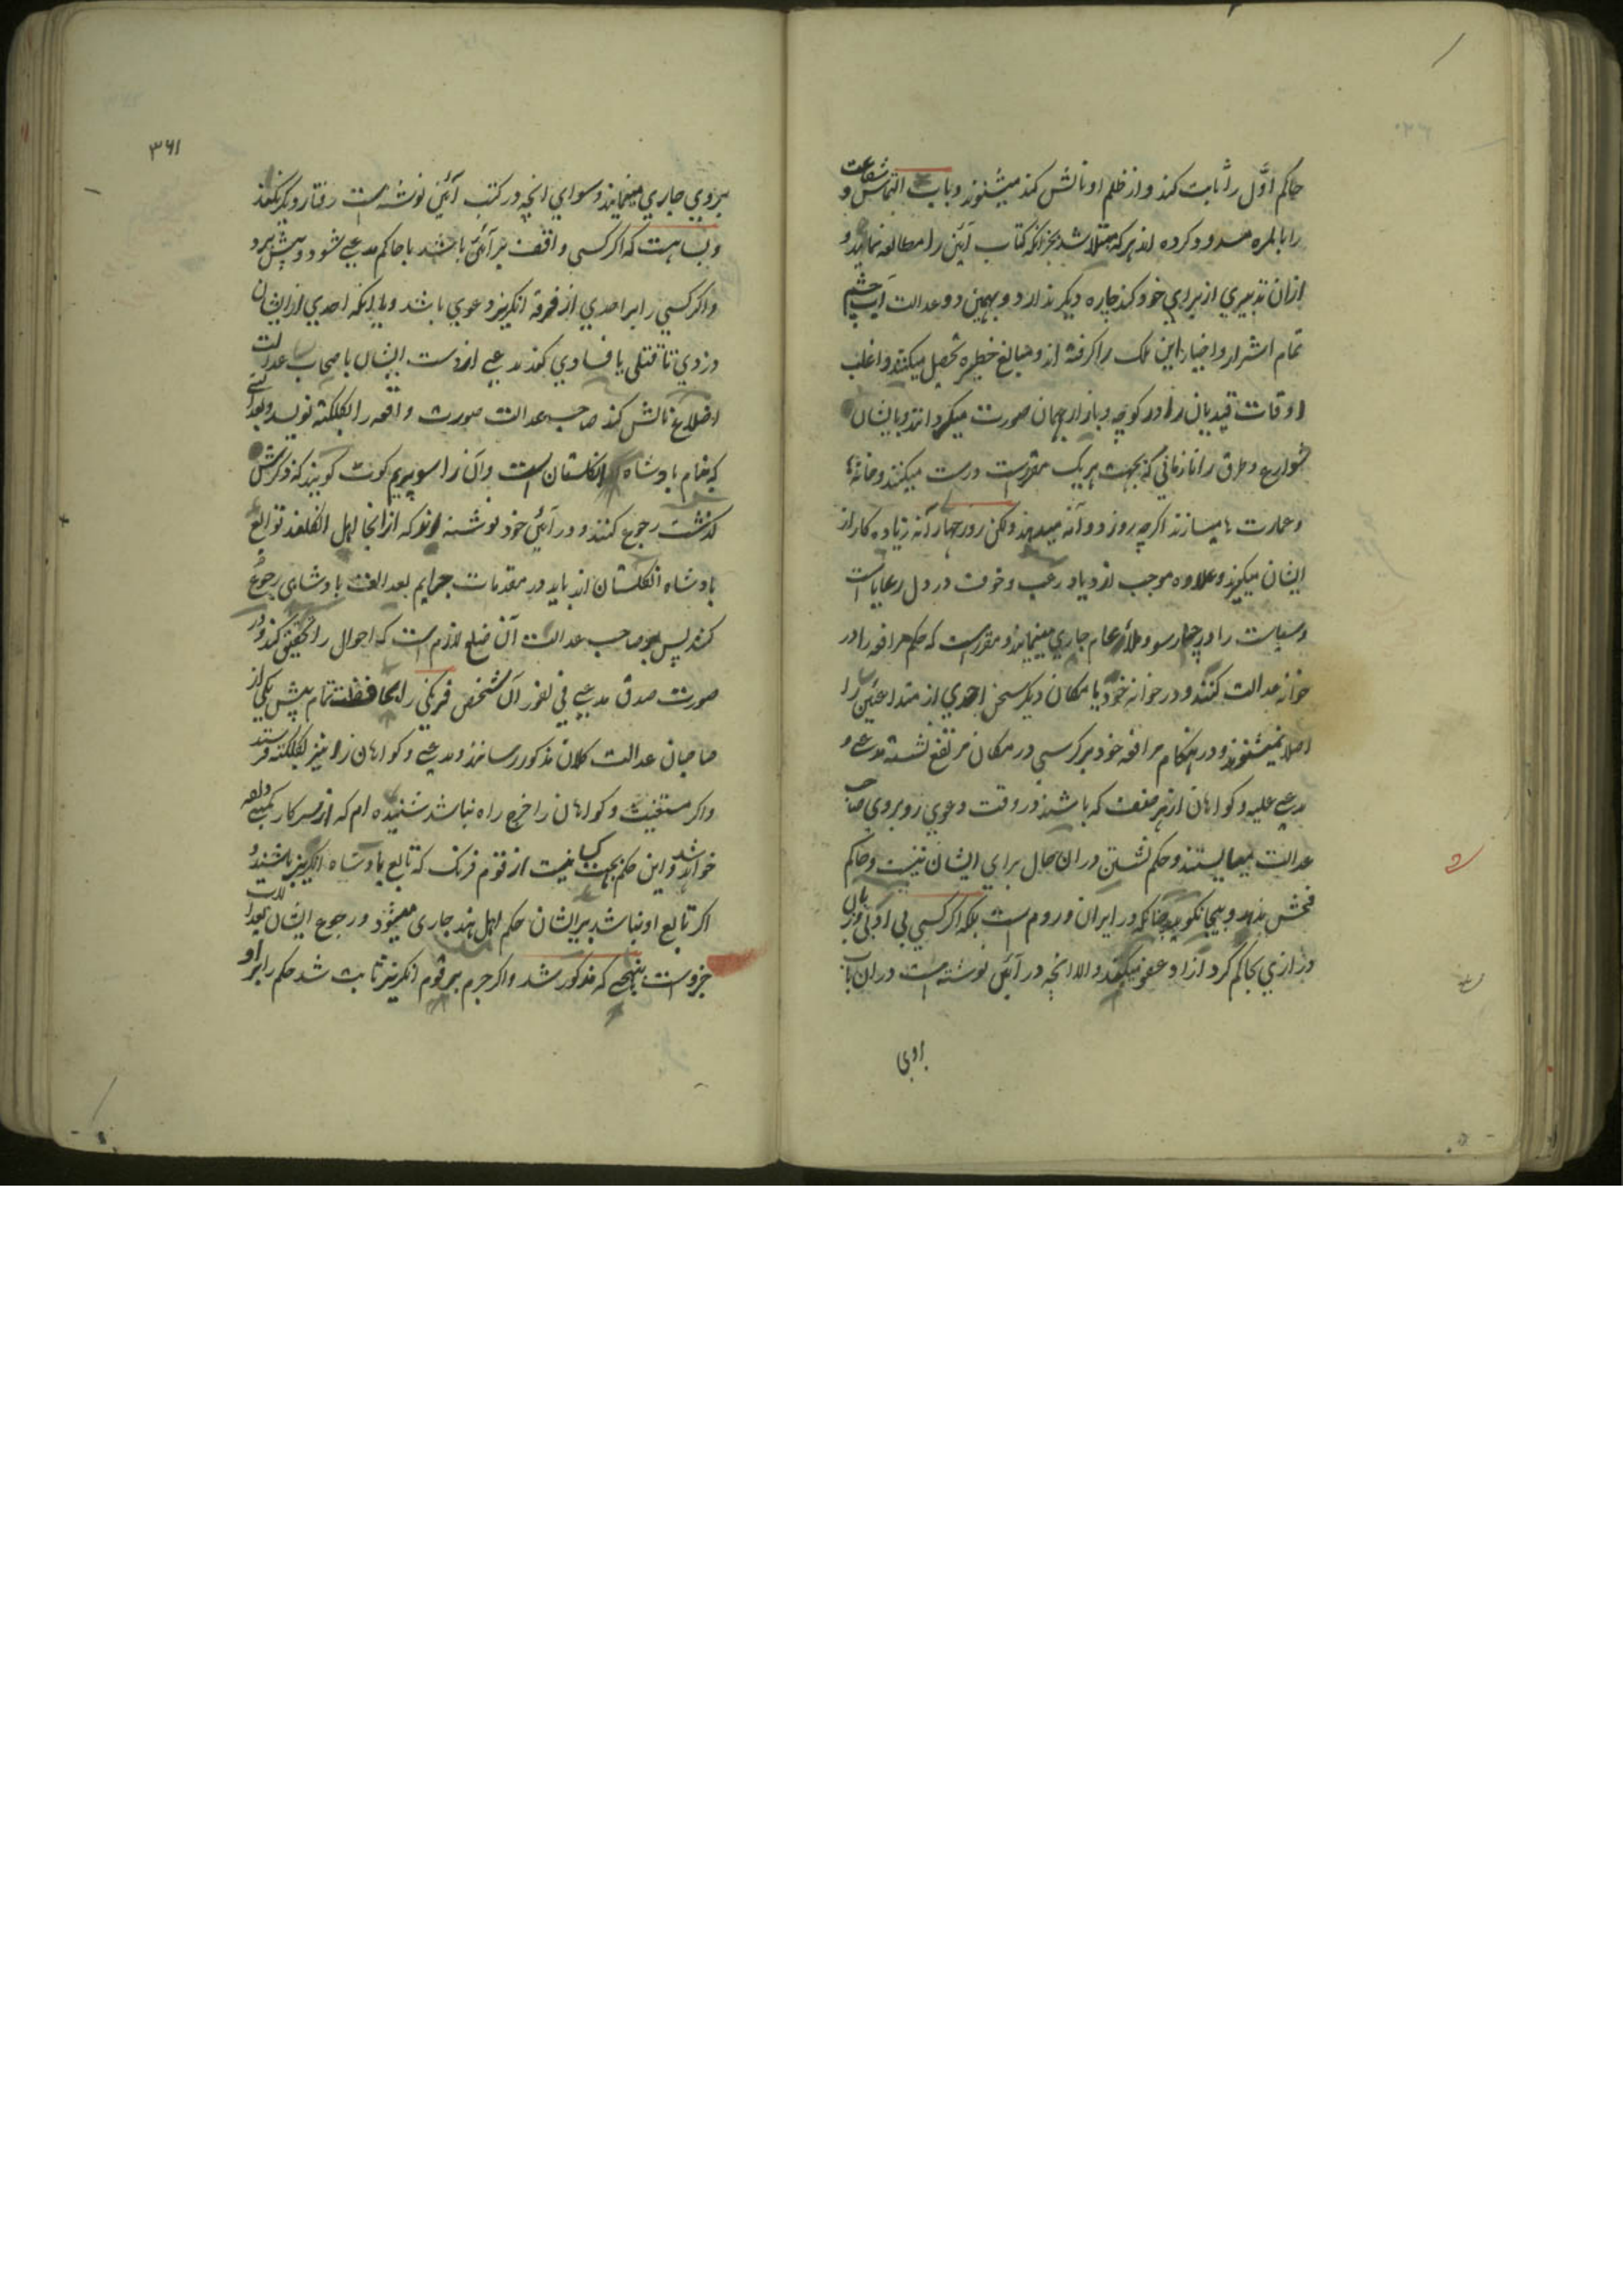 حاکم اوّل را ثابت کند و از ظلم او نالش کند میشنوند و باب التماس و شفاعت
را بالمره مسدود کرده اند هر که مبتلا شد بجز آنکه کتاب آئین را مطالعه نماید و
ازان تدبیری از برای خود کند چاره دیگر ندارد و بهمین دو عدالت آب چشم
تمام اشرار و اخیار این ملک را گرفته اند و مبالغ خطیره تحصیل میکنند و اغلب
اوقات قیدیان را در کوچه و بازار بهمان صورت میگردانند و بایشان
شوارع و طرق را تا زمانی که بجهت هر یک مقررست درست میکنند و خانه ها
و عمارت ها میسازند اگرچه روز دو آنه میدهند ولکن روز چهار آنه زیاده کار از
ایشان میگیرند و علاوه موجب ازدیاد رعب و خوف در دل رعایاست
و سیاست را در چهارسو و ملأ عام جاری مینمایند و مقررست که حکم مرافعه را در
خانه عدالت کنند و در خانه خود یا مکان دیگر سخن احدی از متداعیین را
اصلا نمیشنوند و در هنگام مرافعه خود بر کرسی در مکان مرتفع نشسته مدعی و
مدعی علیه و گواهان از هر صنف که باشند در وقت دعوی روبروی صاحب
عدالت میایستند و حکم نشستن دران حال برای ایشان نیست و حاکم
فحش ندهد و بیجا نگوید چنانکه در ایران و روم است بلکه اگر کسی بی ادبی و زبان
درازی بحاکم کرد ازو عفو میکنند و الا انچه در آئین نوشته است دران باب
بروی
۳۶۱
بروی جاری مینمایند و سوای انچه در کتب آئین نوشته است رفتار دیگر نکنند
و بسا هست که اگر کسی واقف بر آئین باشد با حاکم مدعی شود و پیش برد
و اگر کسی را بر احدی از فرقه انگریز دعوی باشد و یا اینکه احدی از ایشان
دزدی تا قتلی یا فسادی کند مدعی از دست ایشان با صحاب عدالت
اضلاع نالش کند صاحب عدالت صورت واقعه را بکلکته نویسد و بعدالتی
که بنام پادشاه انگلستان است و آن را سوپریم کوت گویند که ذکرش
گذشت رجوع کنند و در آئین خود نوشته اند که ازانجا اهل انگلند توابع
پادشاه انگلستان اند باید در مقدمات جرایم بعدالت پادشاهی رجوع
کنند پس بر صاحب عدالت آن ضلع لازم است که احوال را تحقیق کند و در
صورت صدق مدعی فی الفور آن شخص فرنگی را بمحافظت تمام پیش یکی از
صاحبان عدالت کلان مذکور رسانند و مدعی و گواهان را نیز بکلکته فرستند
و اگر مستغیث و گواهان را خرج راه نباشد شنیده ام که از سرکار کمپنی داده
خواهد شد و این حکم بجهت کسانیست از قوم فرنگ که تابع پادشاه انگریز باشند و
اگر تابع او نباشد بر ایشان حکم اهل هند جاری میشود و رجوع ایشان بعدالت
جزوست بنهجی که مذکور شد و اگر جرم بر قوم انگریز ثابت شد حکم را بر او